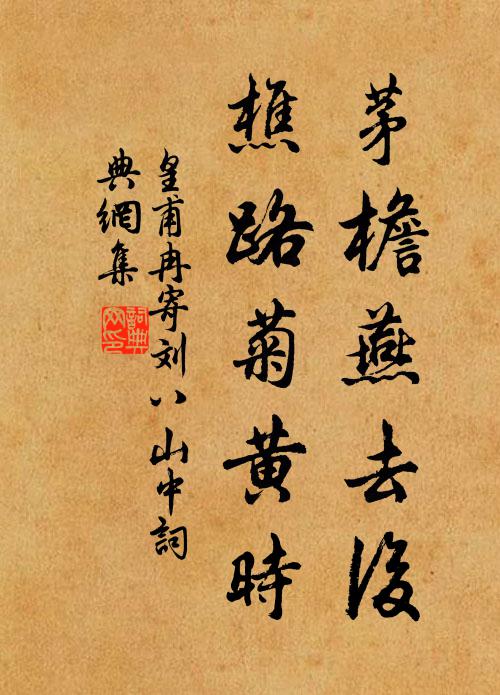 茅檐燕去後
樵路菊黄時
皇甫冉寄刘八山中詞
典網集
詞典
网印